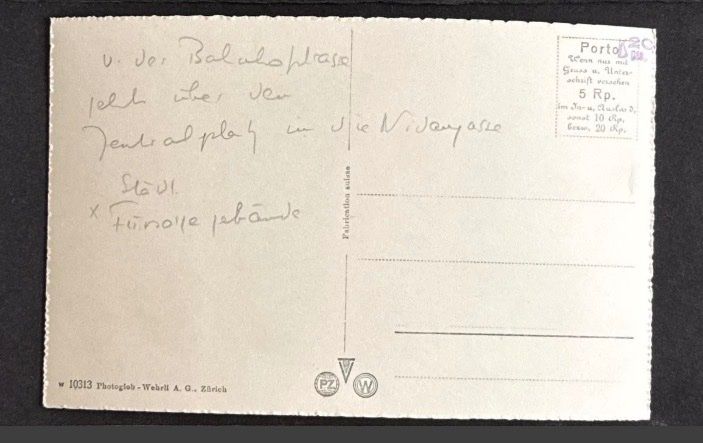 v. der Bahnhofstrasse
über den
Zentralplatz in die Nidaugasse
Städt.
x Fürsorgegebäude
Porto
20
Wenn nur mit
Gruss u. Unter-
schrift versehen
5 Rp.
im In- u. Ausland,
sonst 10 Rp.
bezw. 20 Rp.
Fabrication suisse
W 10313 Photoglob-Wehrli A. G., Zürich
PZ W